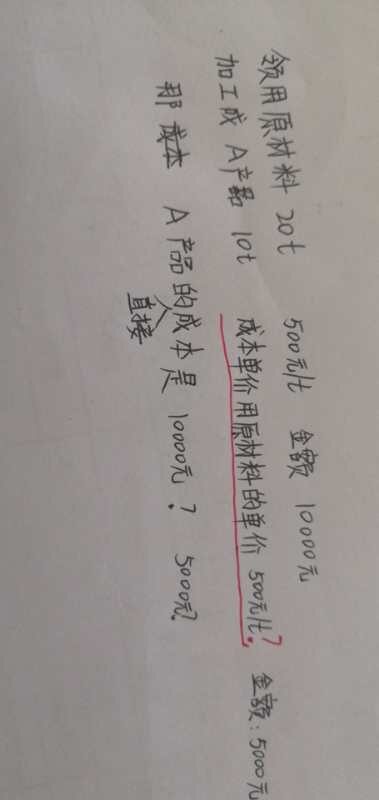 领用原材料 20t 500元/t 金额 10000元
加工成 A产品 10t 成本单价用原材料的单价 500元/t? 金额:5000元
那成本 A产品的直接成本是 10000元? 5000元?